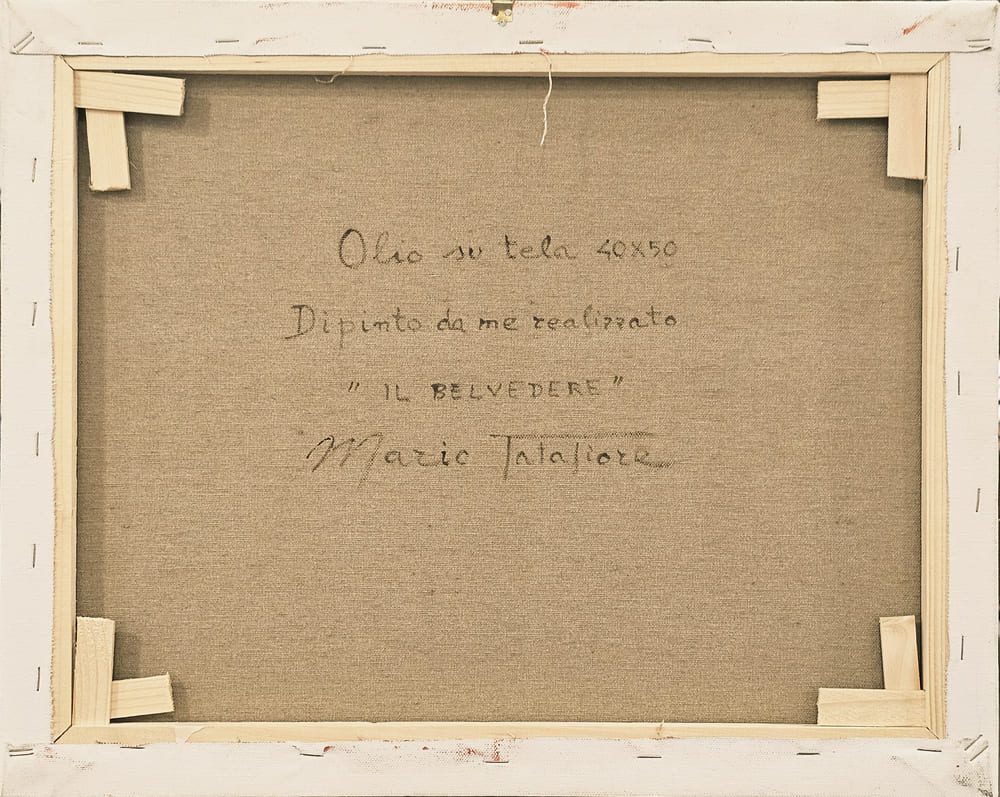 Olio su tela 40x50
Dipinto da me realizzato
"IL BELVEDERE"
Mario Tatafiore